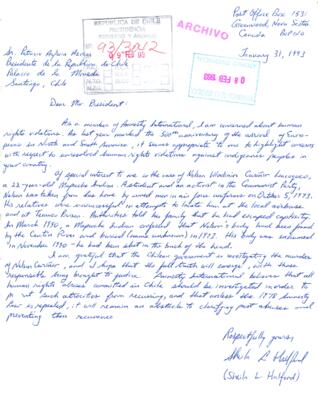 Post Office Box 1531
Greenwood, Nova Scotia
Canada B0P 1N0
January 31, 1993
REPUBLICA DE CHILE
PRESIDENCIA
ARCHIVO
93/3012
08 FEB 1993
Sr. Patricio Aylwin
Presidente de la República de Chile
Palacio de la Moneda
Santiago, Chile
Dear Mr. President:
As a member of Amnesty International, I am concerned about human
rights violations. As last year marked the 500th anniversary of the arrival of Euro-
peans in North and South America, it seems appropriate to me to highlight
with respect to unresolved human rights violations against indigenous peoples in
your country.
Of special interest to me is the case of Nelson Wladimir
a 22-year-old Mapuche Indian. A student and an activist in the Communist Party,
Nelson was taken from his home by armed men in air force uniforms on October 5, 1973.
His relatives were unsuccessful in attempts to locate him at the local
and at Temuco Prison. Authorities told his family that he had escaped captivity.
In March 1990, a Mapuche Indian confessed that Nelson's body had been found
by the River and buried (name unknown) in 1973. His body was exhumed
in November 1990 - he had been shot in the back of the head.
I am grateful that the Chilean government is investigating the murder
of Nelson and I hope that the full truth will emerge, with those
responsible being brought to justice. Amnesty International believes that all
human rights abuses committed in Chile should be investigated in order to
prevent such atrocities from recurring, and that unless the 1978 Amnesty
Law is repealed, it will remain an obstacle to clarifying past abuses and
preventing their recurrence.
Respectfully yours,
Sheila L Halford
(Sheila L. Halford)